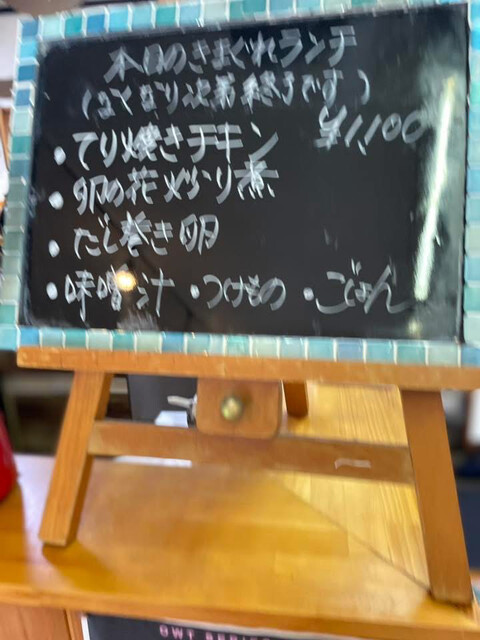 本日のきまぐれランチ
(なくなり次第終了です)
¥1,100
・てり焼きチキン
・卵の花炒り煮
・だし巻き卵
・味噌汁 ・つけもの ・ごはん